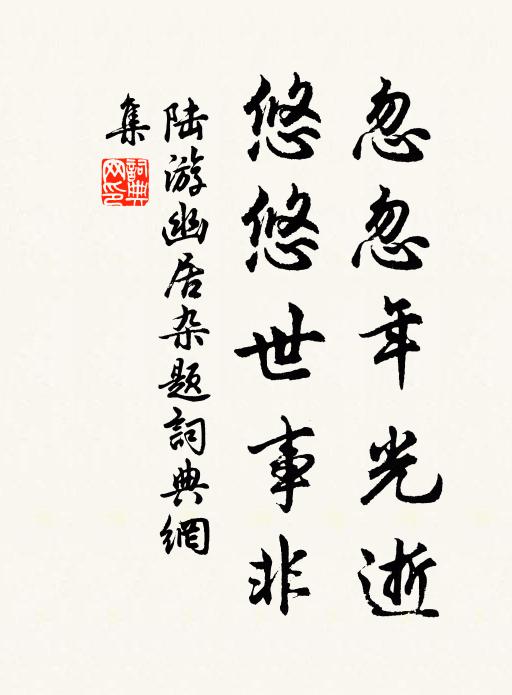 忽忽年光逝
悠悠世事非
陆游幽居杂题詞典網
集
詞典
网印